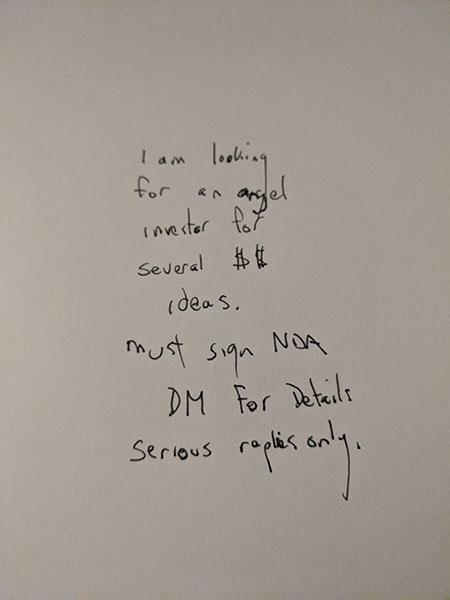 I am looking
for an angel
investor for
several $$
ideas.
must sign NDA
DM For Details
serious replies only.